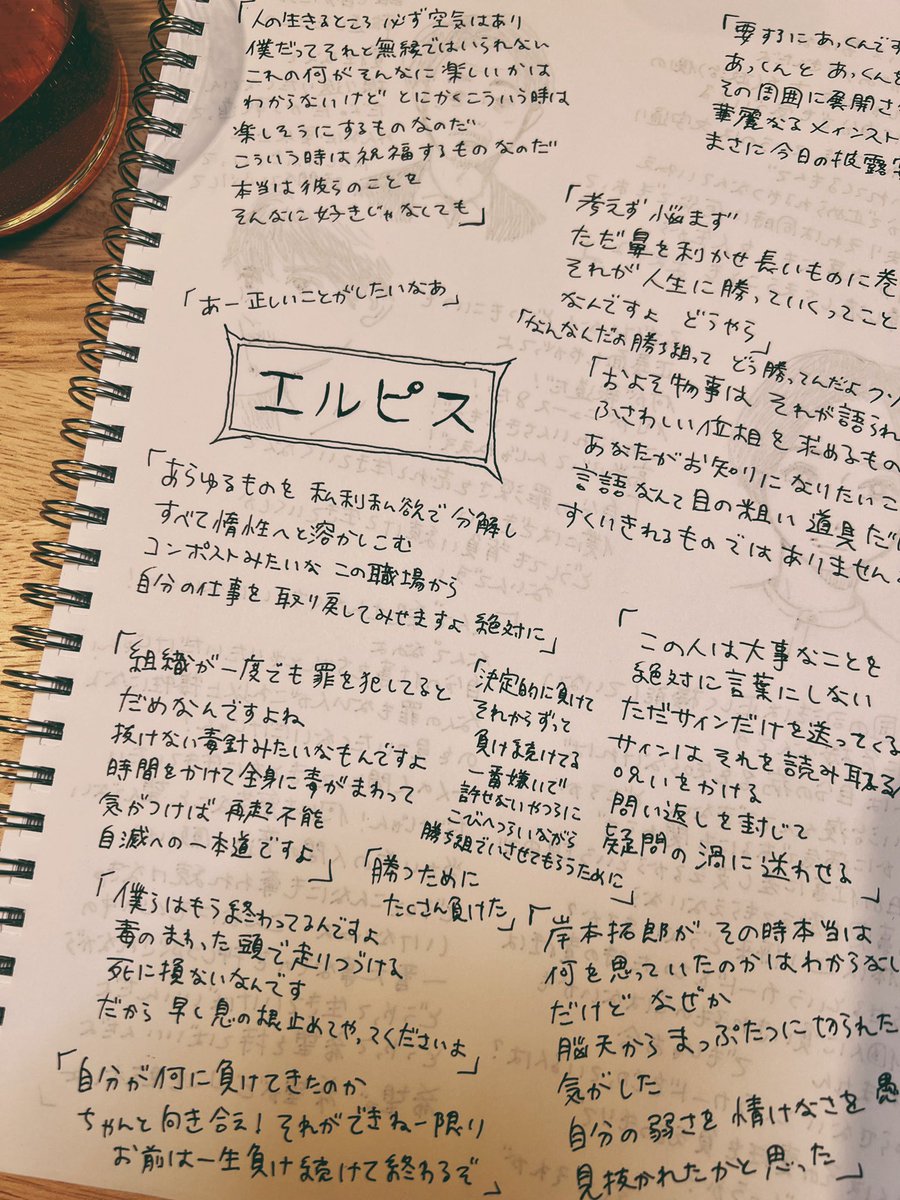 「人の生きるところ 必ず空気はあり
僕だってそれと無縁ではいられない
これの何がそんなに楽しいかは
わからないけど とにかくこういう時は
楽しそうにするものなのだ
こういう時は祝福するものなのだ
本当は彼らのことを
そんなに好きじゃなくても」
「要するにあっくんです
あっくんと あっくんを
その周囲に展開さ
華麗なるメインスト
まさに今日の披露宴
「考えず 悩まず
ただ鼻を利かせ 長いものに巻
それが人生に勝っていくってこと
なんですよ どうやら」
「なんなんだよ勝ち組って どう勝ってんだよ クソ
「あー正しいことがしたいなあ」
エルピス
「およそ物事は それが語られ
ふさわしい位相を求めるもの
あなたがお知りになりたいこ
言語なんて目の粗い 道具だけ
すくいきれるものではありません。
「あらゆるものを 私利私欲で分解し
すべて惰性へと溶かしこむ
コンポストみたいな この職場から
自分の仕事を 取り戻してみせますよ 絶対に」
「組織が一度でも罪を犯してると
だめなんですよね
抜けない毒針みたいなもんですよ
時間をかけて全身に毒がまわって
気がつけば 再起不能
自滅への一本道ですよ」
「決定的に負けて
それからずって
負け続けてる
一番嫌いで
許せないやつらに
こびへつらいながら
勝ち組でいさせてもらうために」
「この人は大事なことを
絶対に言葉にしない
ただサインだけを送ってくる
サインは それを読み取る
呪いをかける
問い返しを封じて
疑問の渦に迷わせる」
「勝つために
たくさん負けた」
「僕らはもう終わってるんですよ
毒のまわった頭で走りつづける
死に損ないなんです
だから 早く息の根止めてやってくださいよ」
「岸本拓郎が その時本当は
何を思っていたのかはわからない
だけど なぜか
脳天から まっぷたつに切られた
気がした
自分の弱さを 情けなさを 愚
見抜かれたかと思った」
「自分が何に負けてきたのか
ちゃんと向き合え! それができねー限り
お前は一生負け続けて終わるぞ」